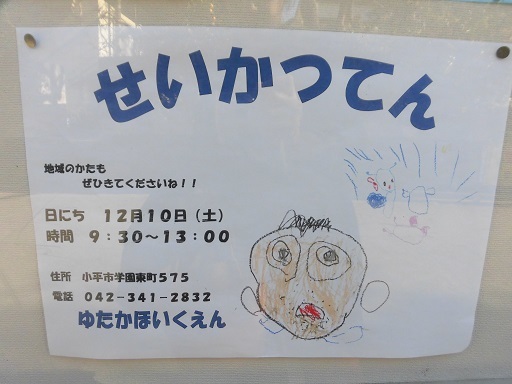 せいかつてん
地域のかたも
ぜひきてくださいね！！
日にち　１２月１０日（土）
時間　９：３０～１３：００
住所　小平市学園東町５７５
電話　０４２－３４１－２８３２
ゆたかほいくえん